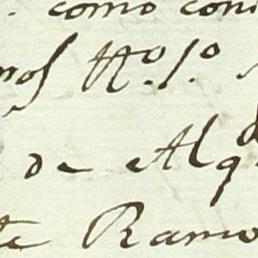 como con
nos Ho. 1o.
de Alq
te Ramo